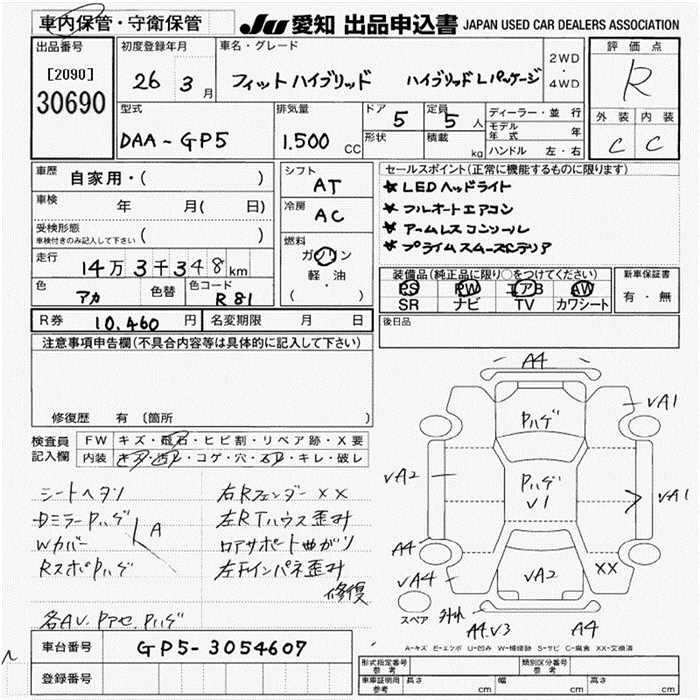 車内保管・守衛保管
JU 愛知 出品申込書 JAPAN USED CAR DEALERS ASSOCIATION
出品番号
[2090]
30690
初度登録年月
26 3 月
車名・グレード
フィットハイブリッド ハイブリッドLパッケージ
2WD
・
4WD
評価点
R
外装 内装
C C
型式
DAA-GP5
排気量
1.500 CC
ドア 5
形状
定員 5 人
積載 kg
ディーラー・並行
モデル年式 年
ハンドル 左・右
車歴 自家用・( )
車検 年 月( 日)
受検形態
車検付きのみ記入して下さい ( )
走行 14万3千348km
色 アカ 色替 色コード R81
シフト
AT
冷房
AC
燃料
ガソリン
軽・油
( ・ )
セールスポイント(正常に機能するものに限ります)
★LEDヘッドライト
★フルオートエアコン
★アームレスコンソール
★プライムスムースインテリア
装備品(純正品に限り○をつけてください)
PS PW エアB AW
SR ナビ TV カワシート
新車保証書
有・無
R券 10,460 円 名変期限 月 日
後日品
注意事項申告欄(不具合内容等は具体的に記入して下さい)
修復歴 有 〔箇所
検査員
記入欄
FW キズ・飛石・ヒビ割・リペア跡・X要
内装 キズ・汚レ・コゲ・穴・スレ・キレ・破レ
シートヘタリ
Dミラーpハゲ
Wカバー
Rスポpハゲ
A
各AV.Pアセ.Pハゲ
右Rフェンダー××
左RTハウス歪み
ロアサポート曲がり
左Fインパネ歪み
修復
A4
Pハゲ
VA1
VA2
Pハゲ
V1
VA1
A4
VA4
VA2
××
スペア
A4.V3
A4
A-キズ E-エクボ U-凹み W-補修跡 S-サビ C-腐食 XX-交換済
車台番号 GP5-3054607
登録番号
形式指定番号
参考
類別区分番号
参考
車庫証明用
参考
長さ cm 幅 cm 高さ cm